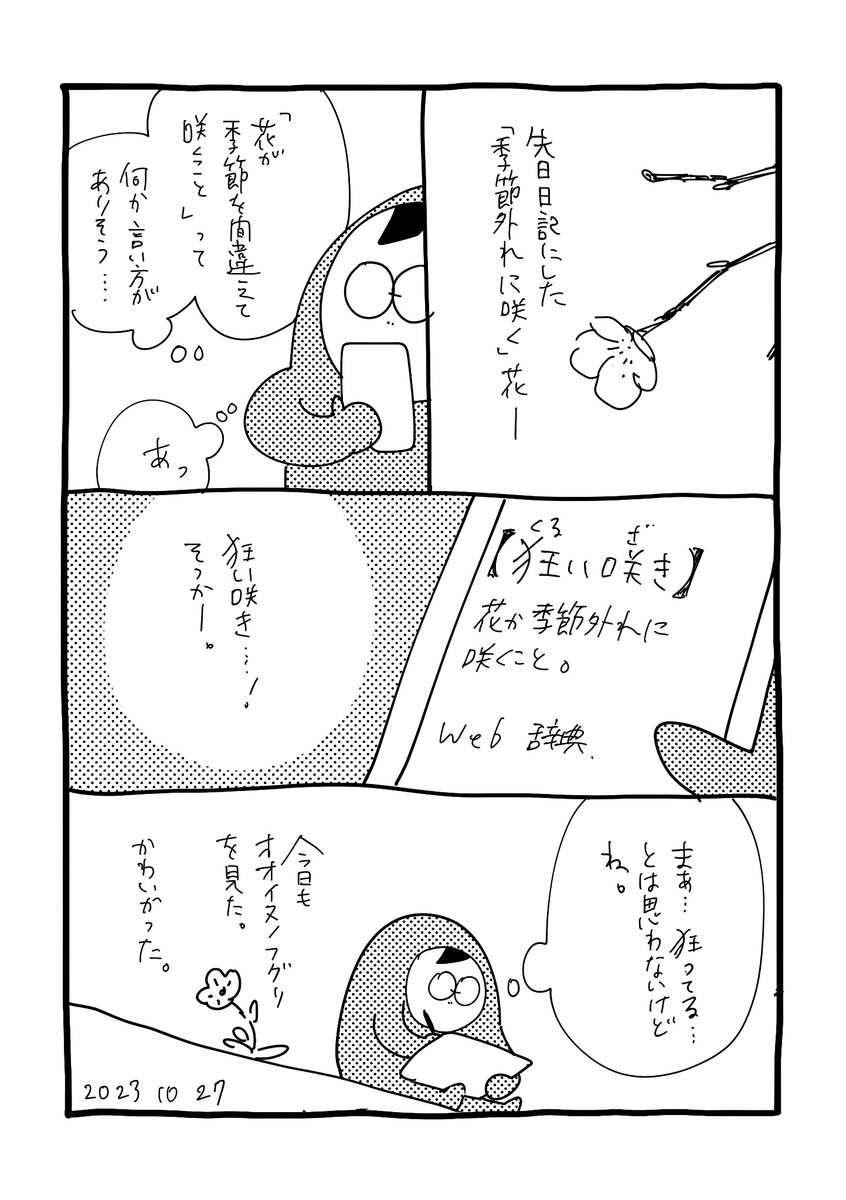 先日日記にした
「季節外れに咲く」花ー
「花が
季節を間違えて
咲くこと」って
何か言い方が
ありそう……
あっ
【狂い咲き】
くる
ざ
花が季節外れに
咲くこと。
Web 辞典
狂い咲き…!
そっかー。
まぁ…狂ってる…
とは思わないけど
ね。
今日も
オオイヌノフグリ
を見た。
かわいかった。
2023 10 27